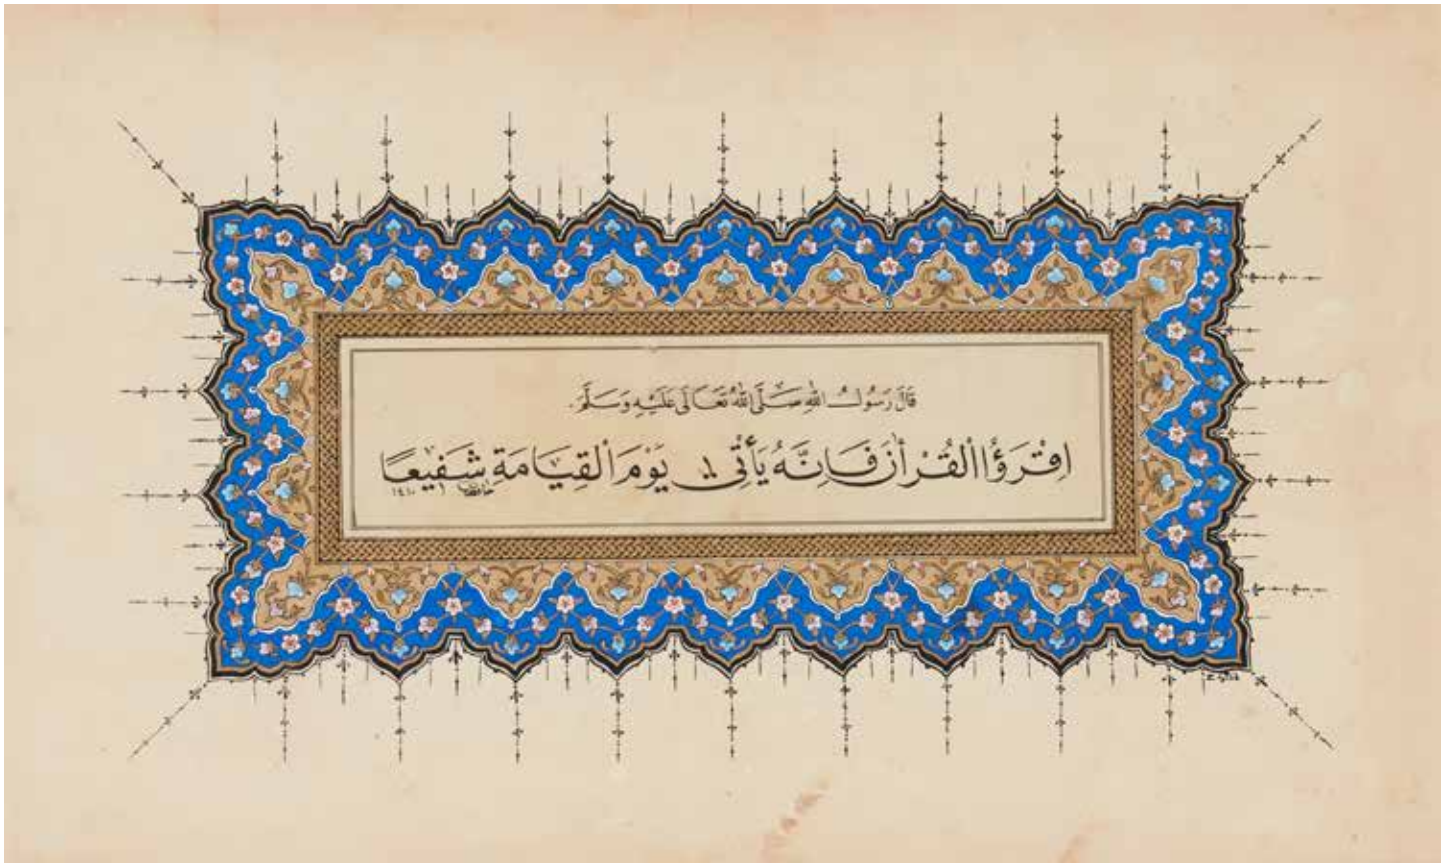 قَالَ رَسُولُ اللهِ صَلَّى اللهُ تَعَالَى عَلَيْهِ وَسَلَّمَ.
اِقْرَؤُا الْقُرْاٰنَ فَاِنَّهُ يَأْتِى يَوْمَ الْقِيَامَةِ شَفِيعًا
١٤١٠